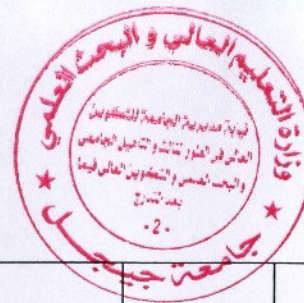 وزارة التعليم العالي و البحث العلمي
نيابة مديرية الجامعة للتكوين
العالي في الطور الثالث والتأهيل الجامعي
والبحث العلمي والتكوين العالي فيما
بعد التدرج
-2-
جامعة جيجل